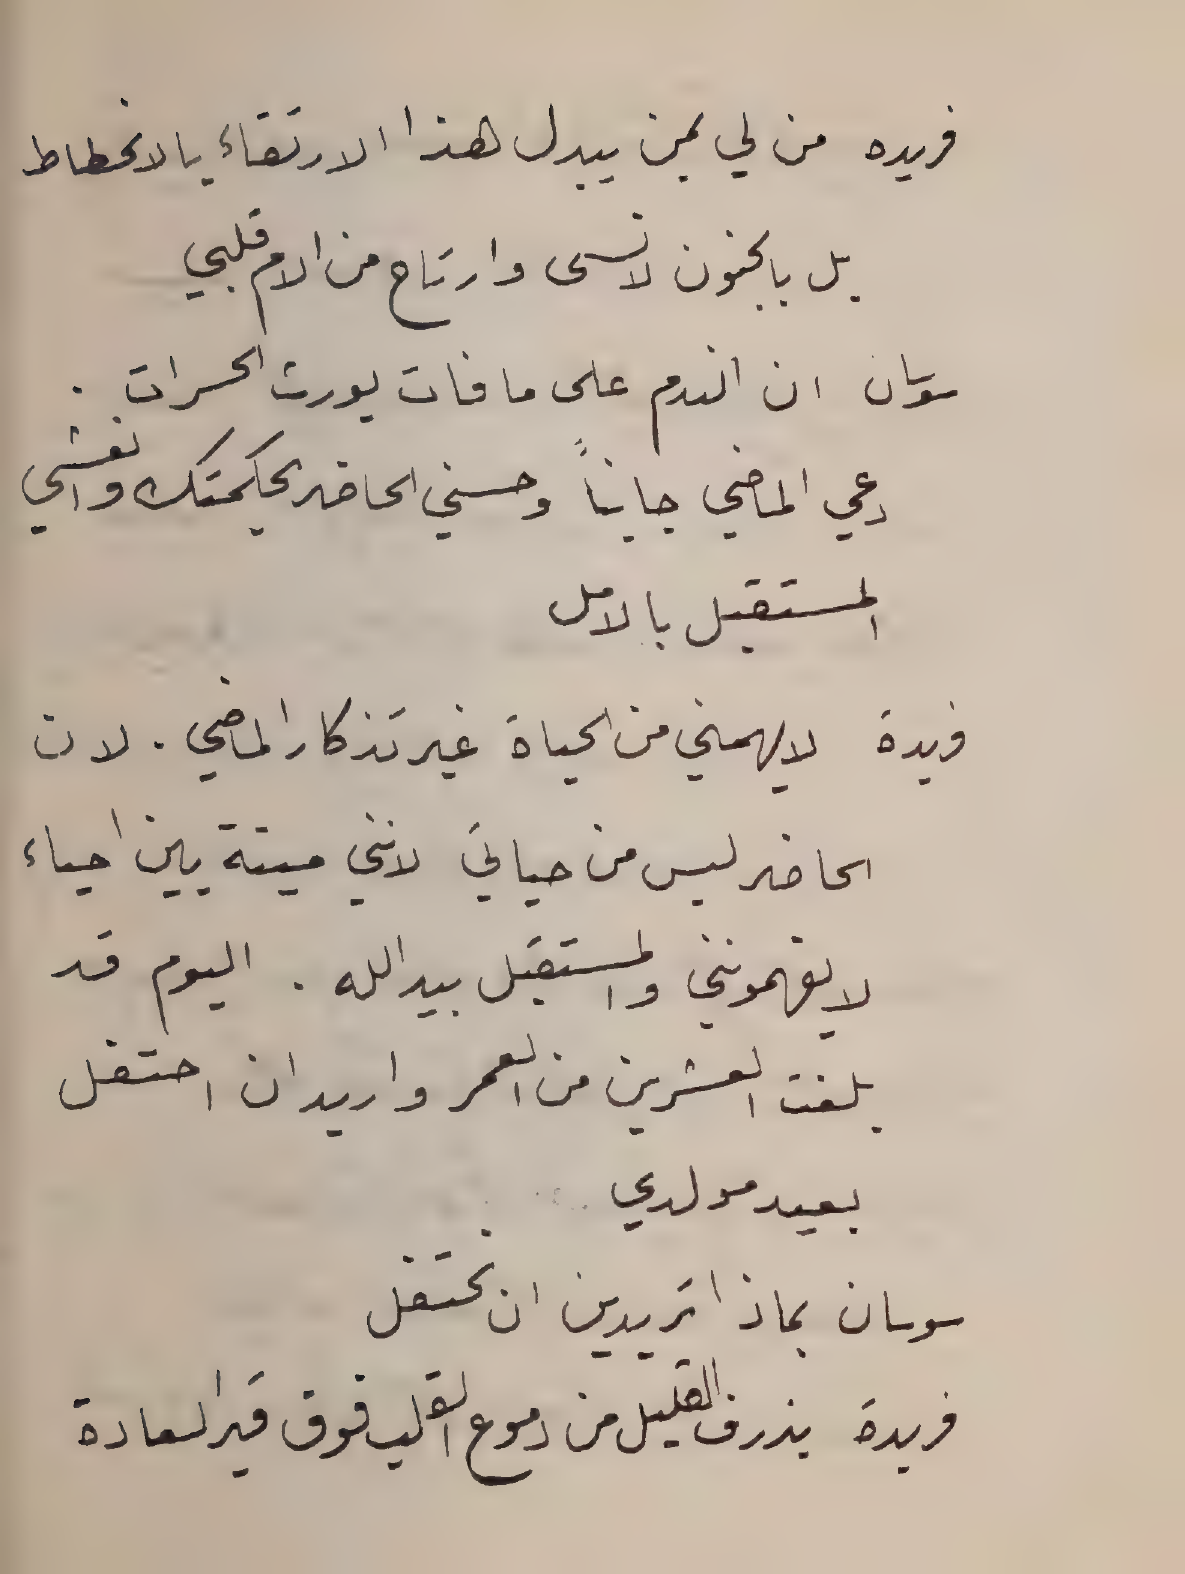 فريده من لي بمن يبدل هذا الارتقاء بالانحطاط
بل بالجنون لانسى وارتاح من الام قلبي
سوسان ان الندم على ما فات يورث الحسرات .
دعي الماضي جانباً وحسني الحاضر بحكمتك وانعشي
المستقبل بالامل
فريدة لا يهمني من الحياة غير تذكار الماضي . لان
الحاضر ليس من حياتي لانني ميتة بين احياء
لا يفهمونني والمستقبل بيد الله . اليوم قد
بلغت العشرين من العمر واريد ان احتفل
بعيد مولدي
سوسان بماذا تريدين ان نحتفل
فريدة بذرف القليل من دموع القلب فوق قبر السعادة